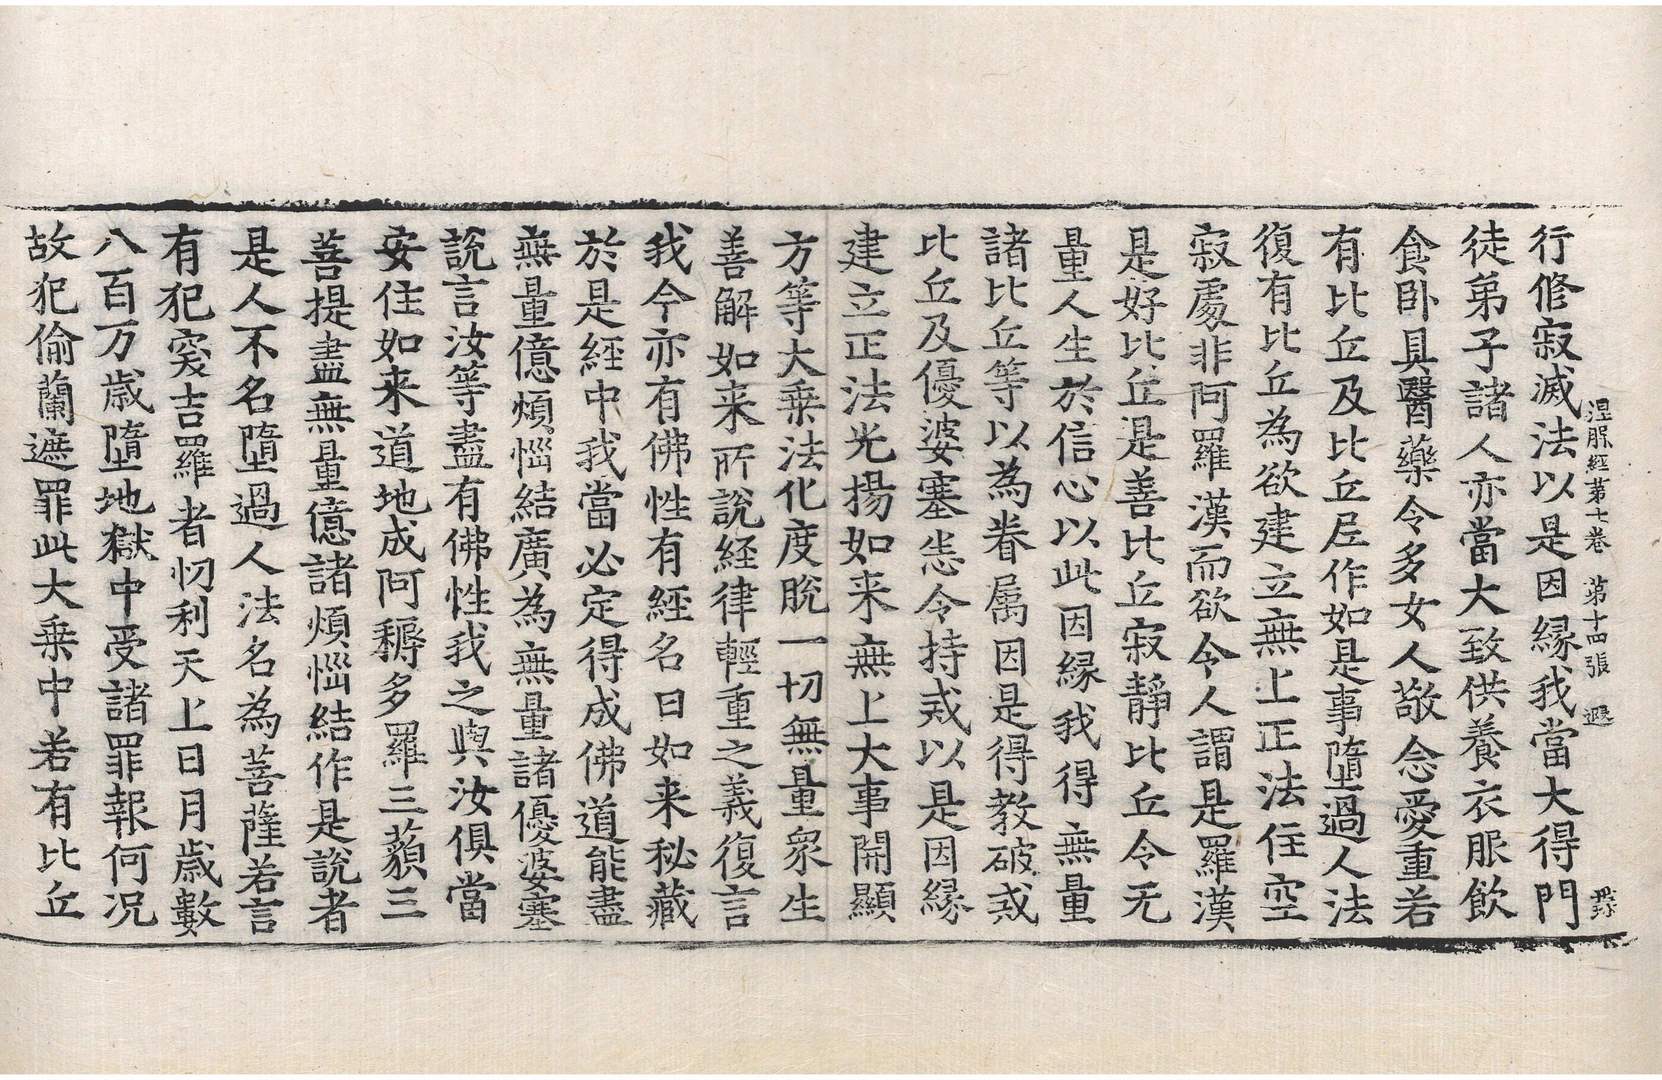 涅槃經第七卷 第十四張 遐
行修寂滅法以是因縁我當大得門
徒弟子諸人亦當大致供養衣服飲
食卧具醫藥令多女人敬念愛重若
有比丘及比丘尼作如是事墮過人法
復有比丘為欲建立無上正法住空
寂處非阿羅漢而欲令人謂是羅漢
是好比丘是善比丘寂靜比丘令无
量人生於信心以此因縁我得無量
諸比丘等以為眷属因是得教破戒
比丘及優婆塞悉令持戒以是因縁
建立正法光揚如来無上大事開顯
方等大乗法化度脫一切無量衆生
善解如来所說經律輕重之義復言
我今亦有佛性有經名曰如来秘藏
於是經中我當必定得成佛道能盡
無量億煩惱結廣為無量諸優婆塞
說言汝等盡有佛性我之與汝俱當
安住如来道地成阿耨多羅三藐三
菩提盡無量億諸煩惱結作是說者
是人不名墮過人法名為菩薩若言
有犯突吉羅者忉利天上日月歳數
八百万歳墮地獄中受諸罪報何况
故犯偷蘭遮罪此大乗中若有比丘